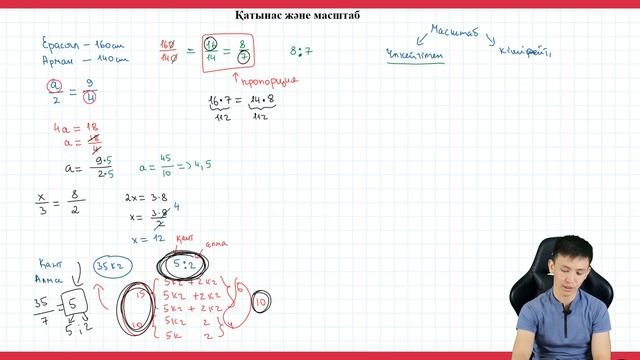 Қатынас және масштаб
Ерасыл – 160см
Арман – 140см
160/140 = 16/14 = 8/7
8:7
пропорция
16·7 = 14·8
112 112
a/2 = 9/4
4a = 18
a = 18/4
a = 9·5/2·5
a = 45/10 => 4,5
x/3 = 8/2
2x = 3·8
x = 3·8/2 4
x = 12
Масштаб
Қант
Алма
35кг
қант алма
5:2
35/7 = 5
5:2
15
10
5кг + 2кг
5кг + 2кг
5кг + 2кг
5кг 2
5к 2
6
4
10